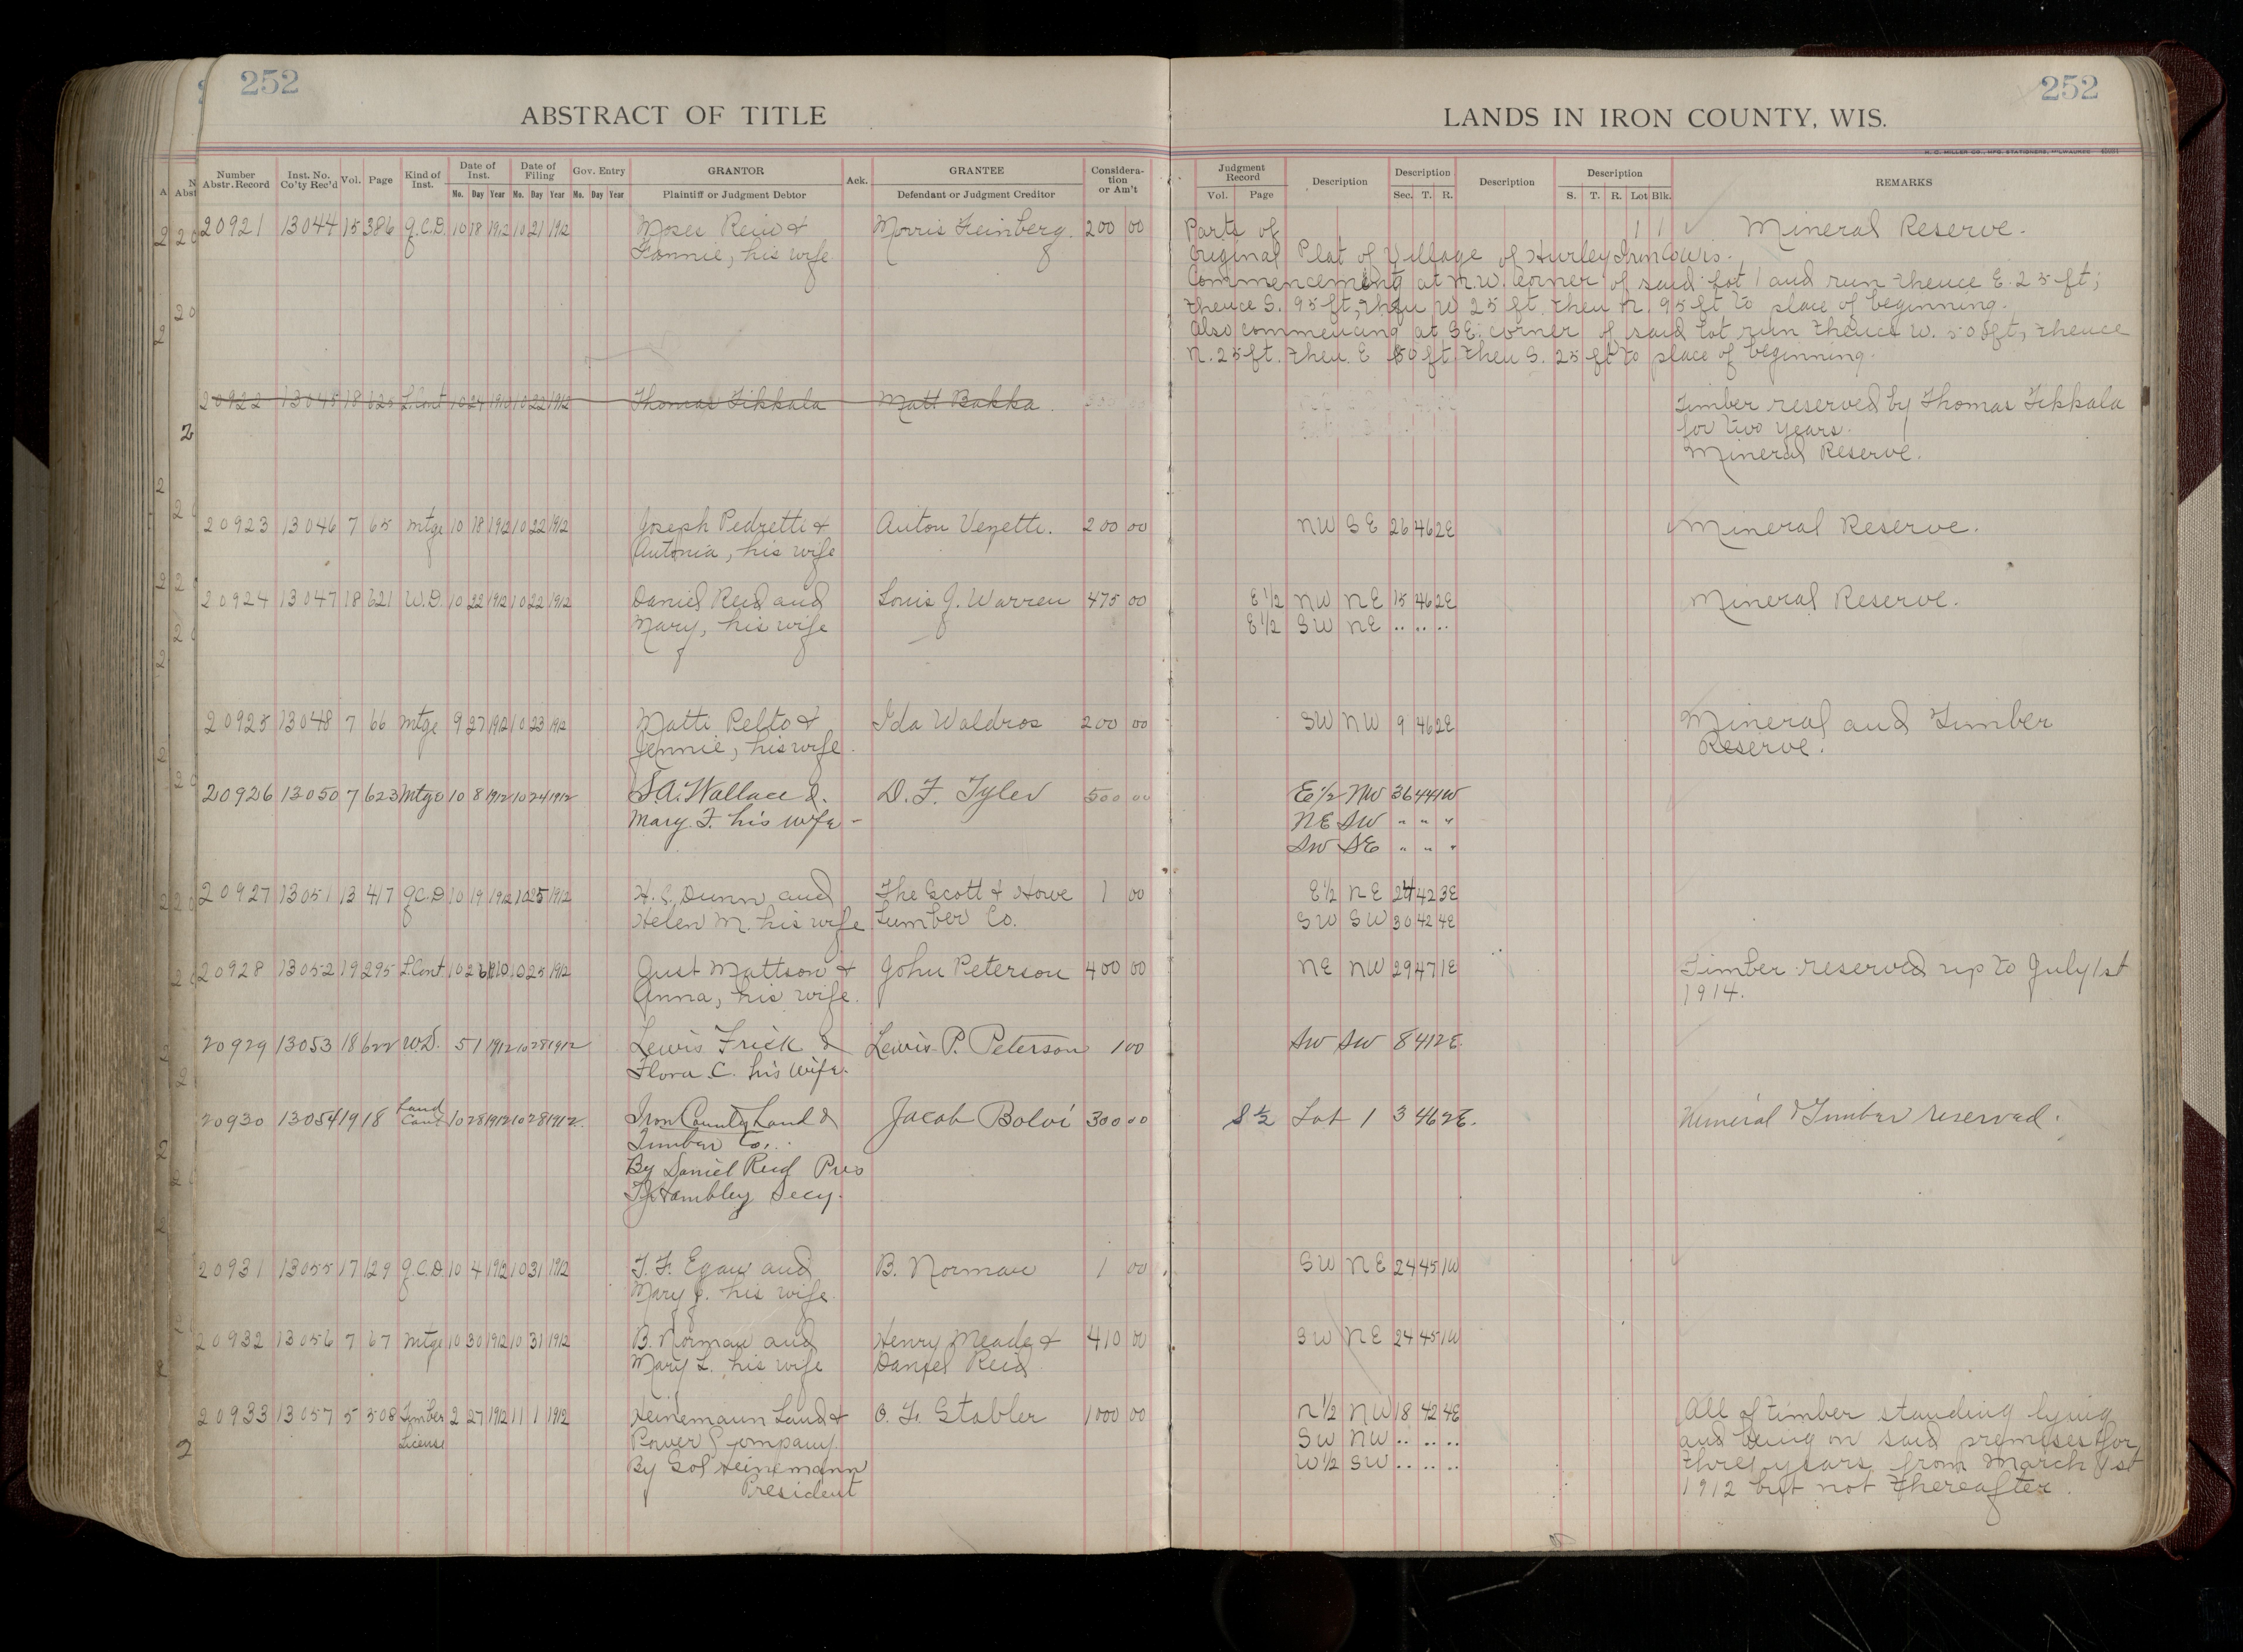 252
252
ABSTRACT OF TITLE
LANDS IN IRON COUNTY, WIS.
H. C. MILLER CO., MFG. STATIONERS, MILWAUKEE
Number Abstr. Record Inst. No. Co'ty Rec'd Vol. Page Kind of Inst. Date of Inst. Mo. Day Year Date of Filing Mo. Day Year Gov. Entry Mo. Day Year GRANTOR Plaintiff or Judgment Debtor Ack. GRANTEE Defendant or Judgment Creditor Consideration or Am't Judgment Record Vol. Page Description Description Sec. T. R. Description Description S. T. R. Lot Blk. REMARKS
20921 13044 15 386 Q.C.D. 10 18 1912 10 21 1912 Moses Reid & Morris Feinberg. 200 00 Parts of 1 1 Mineral Reserve.
Fannie, his wife Original Plat of Village of Hurley Iron Co Wis.
Commencemeng at N.W. corner of said Lot 1 and run thence E. 25 ft;
thence S. 95 ft, then W 25 ft. then N. 95 ft to place of beginning.
Also commencing at SE. corner of said Lot run thence W. 50 ft, thence
N. 25 ft. then E 50 ft then S. 25 ft to place of beginning.
20922 13045 18 620 L. Cont 10 24 1910 10 22 1912 Thomas Fikkala Matt Bakka. Timber reserved by Thomas Fikkala
for two years.
Mineral Reserve.
20923 13046 7 65 Mtge 10 18 1912 10 22 1912 Joseph Pedretti & Anton Venetti. 200 00 NW SE 26 46 2E Mineral Reserve.
Antonia, his wife
20924 13047 18 621 W.D. 10 22 1912 10 22 1912 Daniel Reid and Louis J. Warren 475 00 E 1/2 NW NE 15 46 2E Mineral Reserve.
Mary, his wife E 1/2 SW NE .. .. ..
20925 13048 7 66 Mtge 9 27 1912 10 23 1912 Matti Pelto & Ida Waldros 200 00 SW NW 9 46 2E Mineral and Timber
Jennie, his wife. Reserve.
20926 13050 7 623 Mtge 10 8 1912 10 24 1912 S.A. Wallace & D. F. Tyler 500 00 E 1/2 NW 36 44 1W
Mary F. his wife - NE SW " " "
SW SE " " "
20927 13051 13 417 Q.C.D 10 19 1912 10 25 1912 H. E. Dunn and The Scott & Howe 1 00 E 1/2 NE 24 42 3E
Helen M. his wife Lumber Co. SW SW 30 42 4E
20928 13052 19 295 L. Cont 10 26 1910 10 25 1912 Gust Mattson & John Peterson 400 00 NE NW 29 47 1E Timber reserved up to July 1st
Anna, his wife. 1914.
20929 13053 18 622 W.D. 5 1 1912 10 28 1912 Lewis Frick & Lewis P. Peterson 1 00 SW SW 8 41 2E.
Flora C. his wife.
20930 13054 19 18 Land Cont 10 28 1912 10 28 1912. Iron County Land & Jacob Bolvi 300 00 S 1/2 Lot 1 3 46 2E. Mineral & Timber reserved.
Timber Co.
By Daniel Reid Pres
T.J. Hambley Secy.
20931 13055 17 129 Q.C.D 10 4 1912 10 31 1912 T. F. Egan and B. Norman 1 00 SW NE 24 45 1W
Mary J. his wife.
20932 13056 7 67 Mtge 10 30 1912 10 31 1912 B. Norman and Henry Meade & 410 00 SW NE 24 45 1W
Mary L. his wife Daniel Reid
20933 13057 5 508 Timber 2 27 1912 11 1 1912 Heinemann Land & O. F. Stabler 1000 00 N 1/2 NW 18 42 4E All of timber standing lying
License Power Company. SW NW .. .. .. and being on said premises for
By Sol Heinemann W 1/2 SW .. .. .. three years from March 1st
President 1912 but not thereafter.